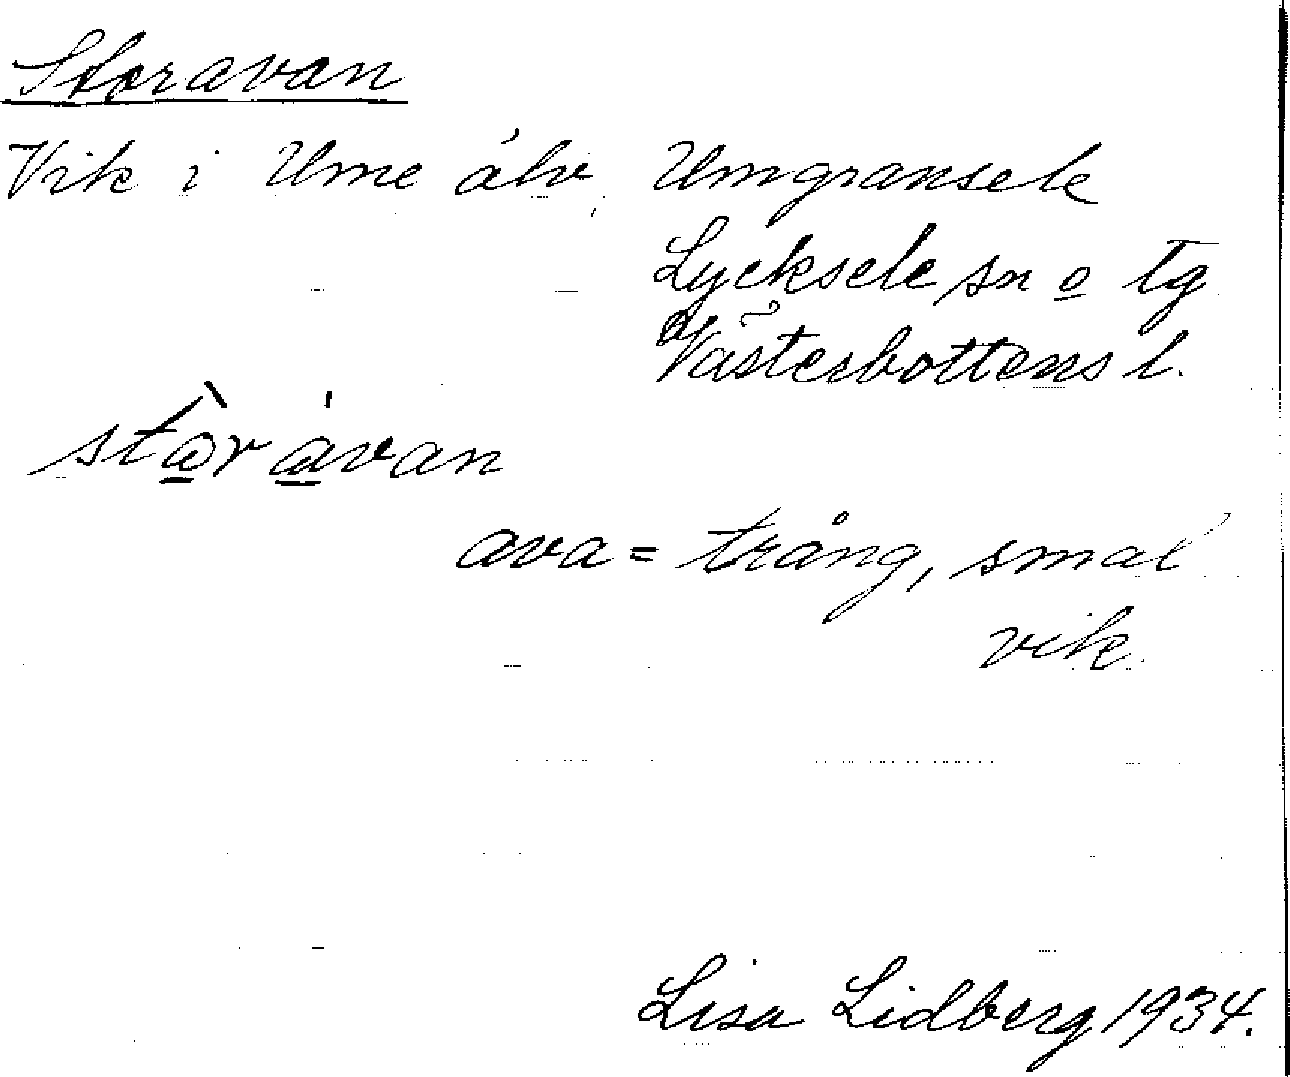 Storavan
Vik i Ume älv, Umgransele
Lycksele sn o tg
Västerbottens l.
stạ̀r ávan
ava = trång, smal
vik.
Lisa Lidberg 1934.